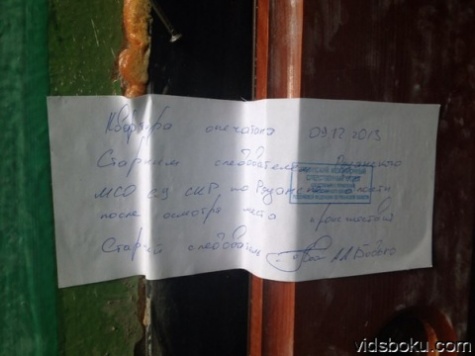 Квартира опечатана 09.12.2013
Старшим следователем Рязанского
МСО СУ СКР по Рязанской области
после осмотра места происшествия
Старший следователь
vidsboku.com